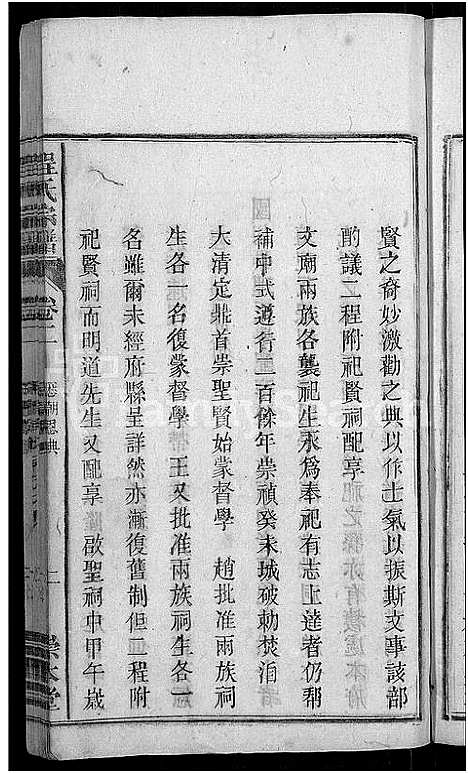 賢之奇妙激勸之典以作士氣以振斯文事該部
酌議二程附祀賢祠配享
文廟兩族各襲祀生永為奉祀有志上達者仍幇
補中式遵行二百餘年崇禎癸未城破勅焚泪
國
大清定鼎首崇聖賢始蒙督學 趙批准兩族祠
生各一名復蒙督學 王又批准兩族祠生各一
名雖爾未經府縣呈詳然亦漸復舊制但二程附
祀賢祠而明道先生又配享啟聖祠中甲午歲
程氏宗譜 卷二 歷朝恩典 二 崇本堂